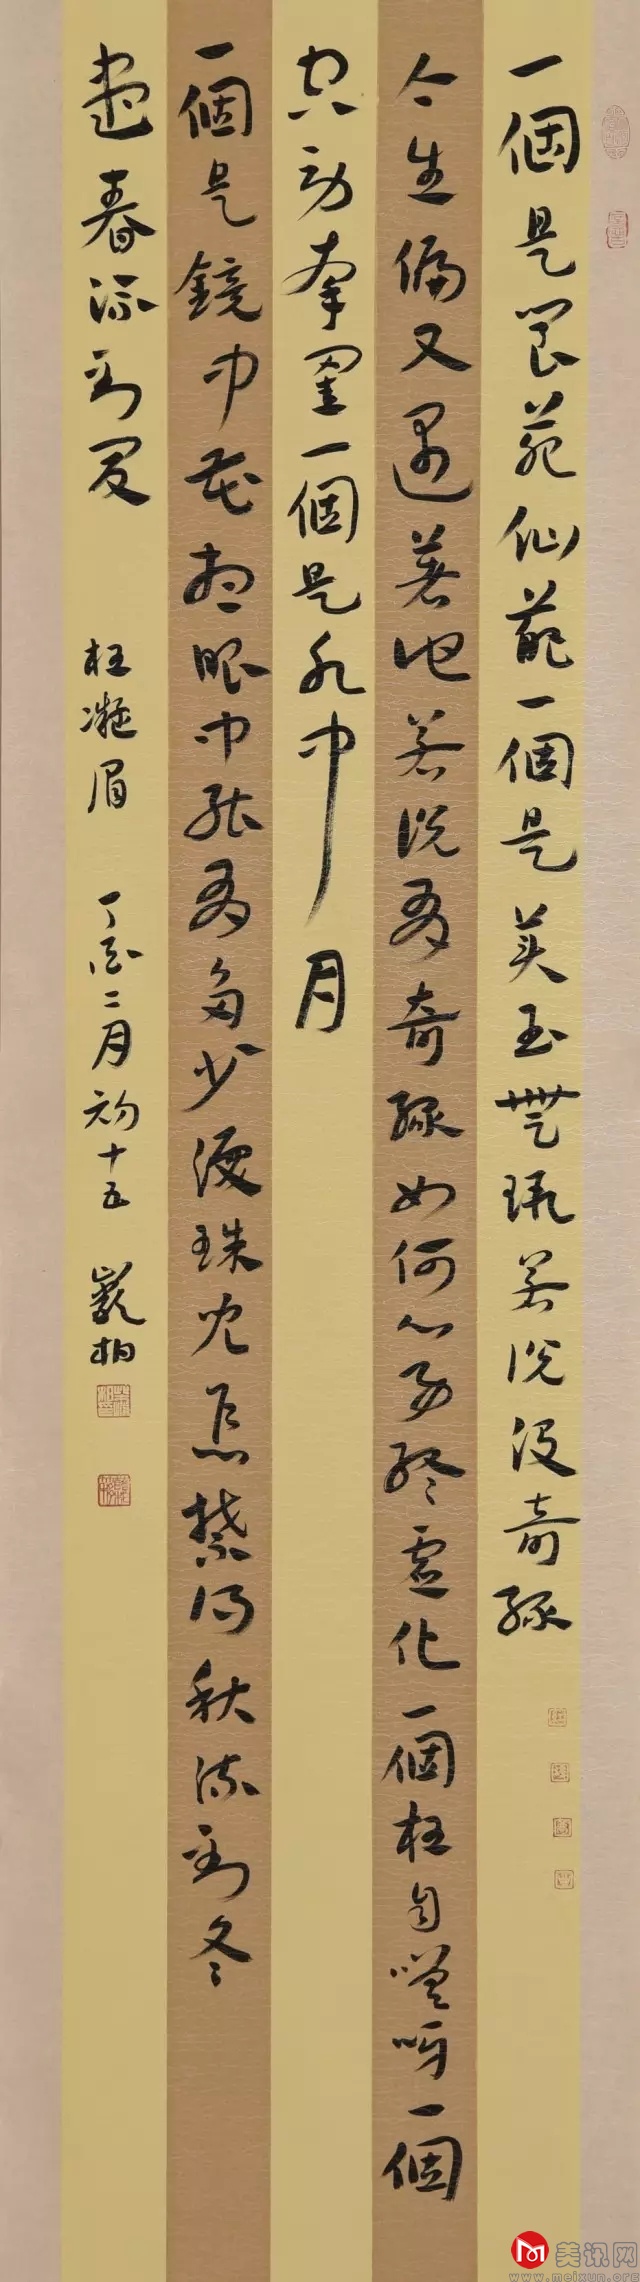 一個是閬苑仙葩一個是美玉無瑕若説没奇緣
今生偏又遇著他若説有奇緣如何心事終虛化一個枉自嗟呀一個
空勞牽掛一個是水中月
一個是鏡中花想眼中能有多少淚珠兒怎禁得秋流到冬
盡春流到夏
枉凝眉 丁酉二月初十五 巖柏
美讯网
www.meixun.org